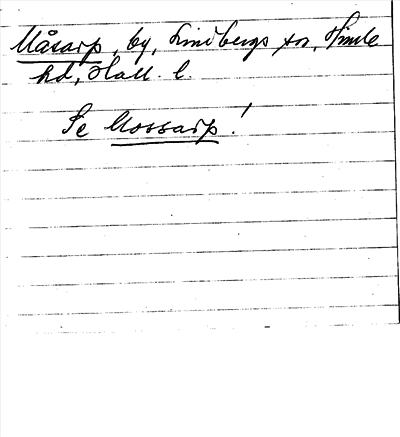 Måsarp, by, Lindbergs sn, Himle
hd, Hall. l.
Se Mossarp!